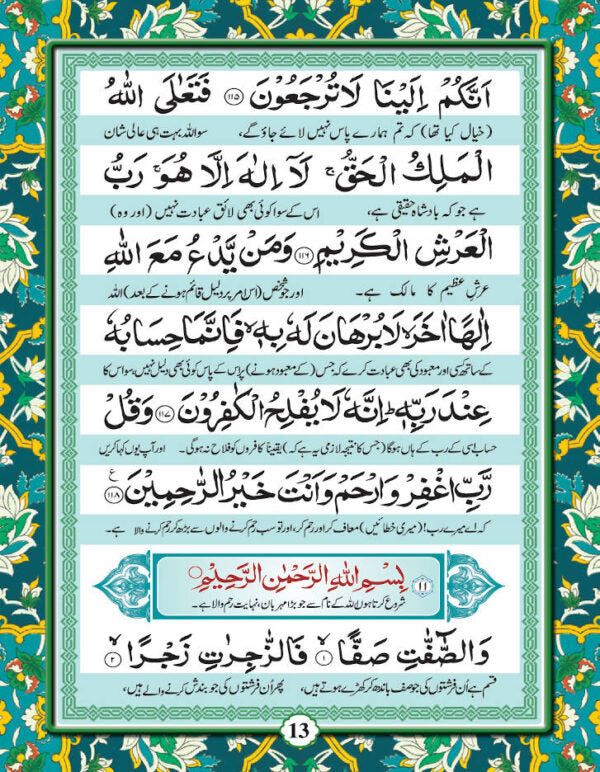 اَنَّكُمْ اِلَيْنَا لَا تُرْجَعُوْنَ ﴿۱۱۵﴾ فَتَعٰلَى اللّٰهُ
(خیال کیا تھا) کہ تم ہمارے پاس نہیں لائے جاؤ گے، سو اللہ بہت ہی عالی شان
الْمَلِكُ الْحَقُّ ۚ لَاۤ اِلٰهَ اِلَّا هُوَ ۚ رَبُّ
ہے جو کہ بادشاہ حقیقی ہے، اس کے سوا کوئی بھی لائق عبادت نہیں (اور وہ)
الْعَرْشِ الْكَرِيْمِ ﴿۱۱۶﴾ وَمَنْ يَّدْعُ مَعَ اللّٰهِ
عرش عظیم کا مالک ہے۔ اور جو شخص (اس امر پر دلیل قائم ہونے کے بعد) اللہ
اِلٰهًا اٰخَرَ ۙ لَا بُرْهَانَ لَهٗ بِهٖ ۙ فَاِنَّمَا حِسَابُهٗ
کے ساتھ کسی اور معبود کی بھی عبادت کرے کہ جس (کے معبود ہونے) پر اس کے پاس کوئی بھی دلیل نہیں، سو اس کا
عِنْدَ رَبِّهٖ ؕ اِنَّهٗ لَا يُفْلِحُ الْكٰفِرُوْنَ ﴿۱۱۷﴾ وَقُلْ
حساب اسی کے رب کے ہاں ہوگا (جس کا نتیجہ لازمی یہ ہے کہ) یقیناً کافروں کو فلاح نہ ہوگی۔ اور آپ یوں کہا کریں
رَّبِّ اغْفِرْ وَارْحَمْ وَاَنْتَ خَيْرُ الرّٰحِمِيْنَ ﴿۱۱۸﴾ ع
کہ اے میرے رب! (میری خطائیں) معاف کر اور رحم کر، اور تو سب رحم کرنے والوں سے بڑھ کر رحم کرنے والا ہے۔
۱۱ بِسْمِ اللّٰهِ الرَّحْمٰنِ الرَّحِيْمِ
شروع کرتا ہوں اللہ کے نام سے جو بڑا مہربان، نہایت رحم والا ہے۔
وَالصّٰٓفّٰتِ صَفًّا ۙ﴿۱﴾ فَالزّٰجِرٰتِ زَجْرًا ۙ﴿۲﴾
قسم ہے اُن فرشتوں کی جو صف باندھ کر کھڑے ہوتے ہیں، پھر اُن فرشتوں کی جو بندش کرنے والے ہیں،
13